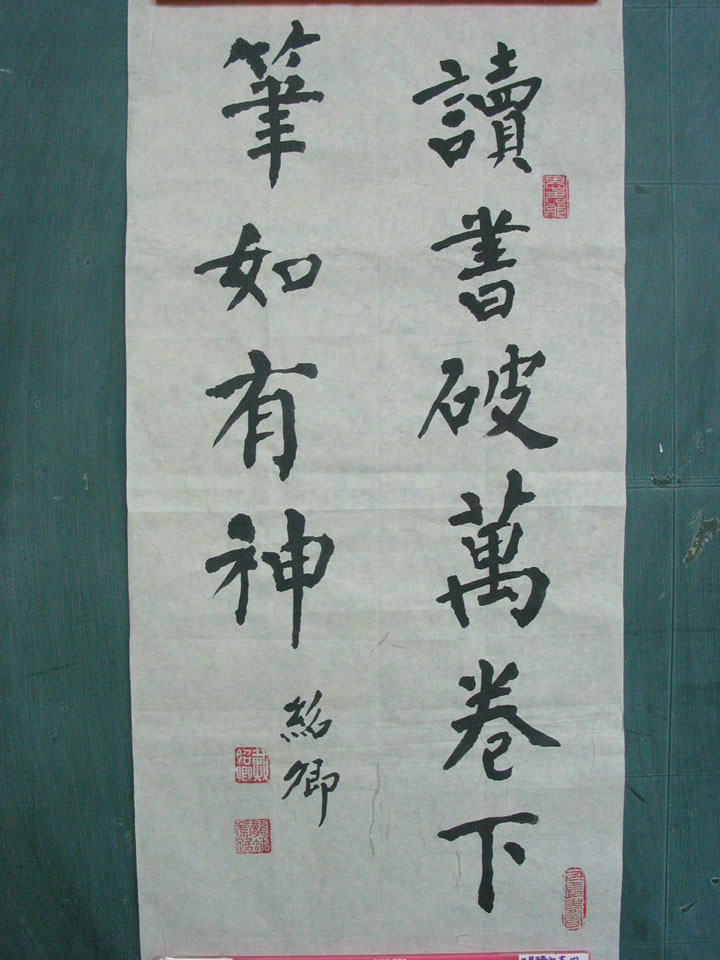 讀書破萬卷下
筆如有神
紹卿
戴紹卿